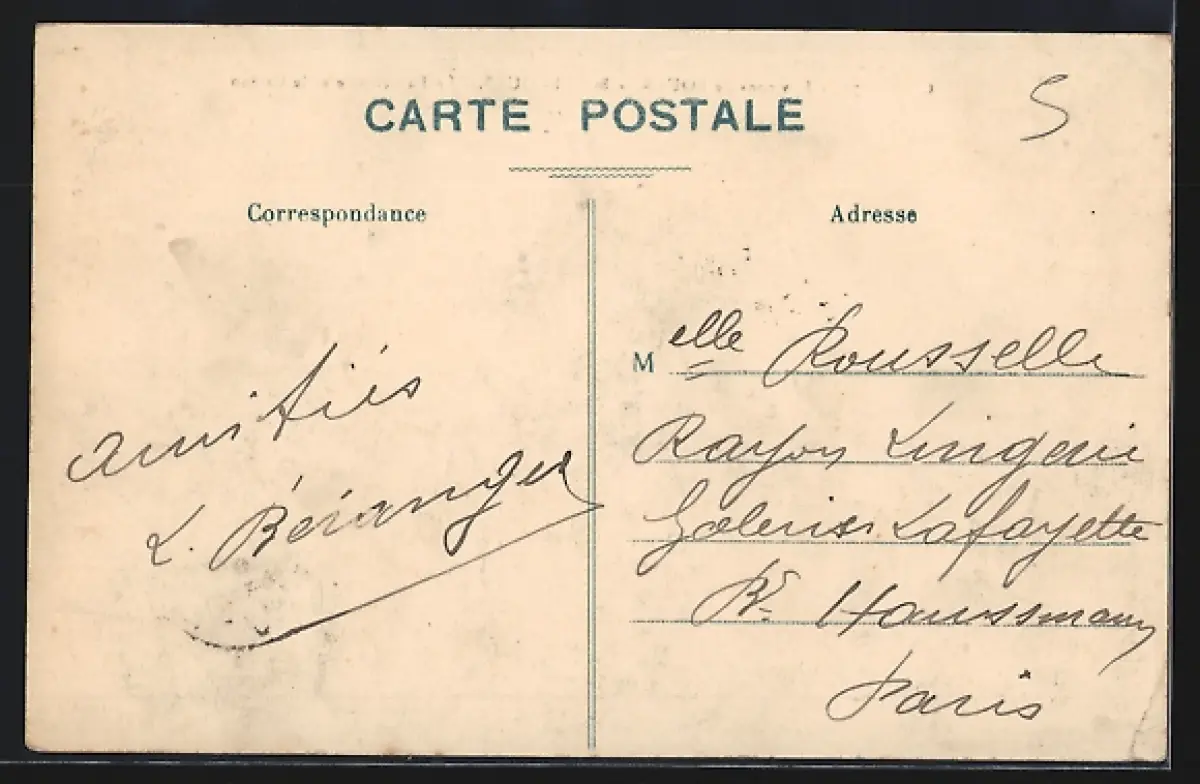 CARTE POSTALE
5
Correspondance
Adresse
amitiés
L. Béranger
Melle Rousselle
Rayon Lingerie
Galeries Lafayette
Bd Haussmann
Paris